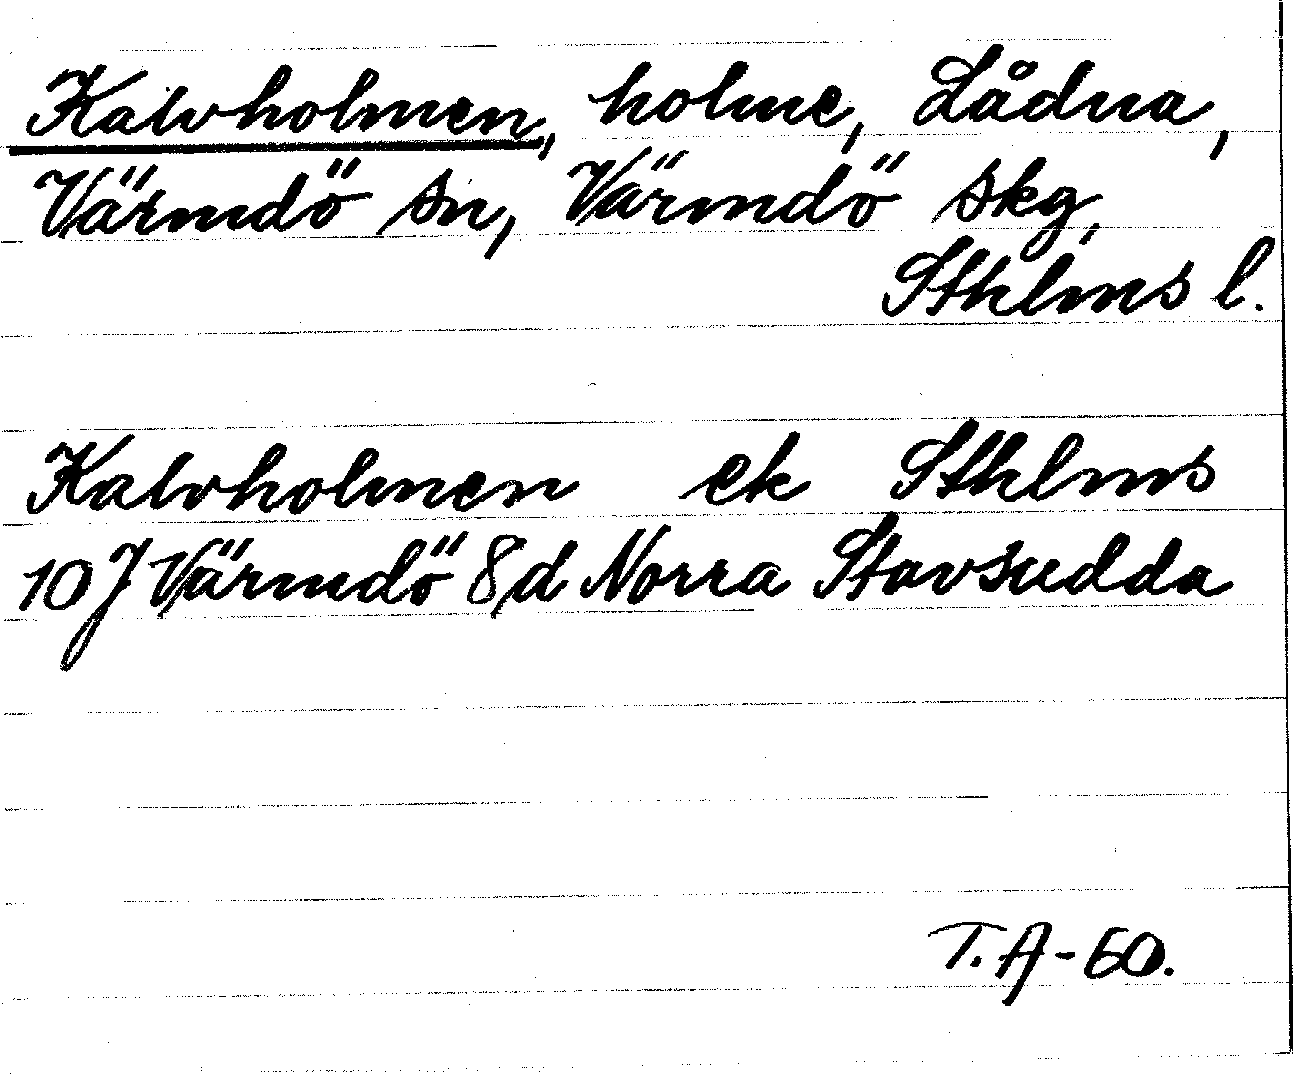 Kalvholmen, holme, Lådna,
Värmdö sn, Värmdö skg,
Sthlms l.
Kalvholmen ek Sthlms
10 J Värmdö 8d Norra Stavsudda
T. A-60.